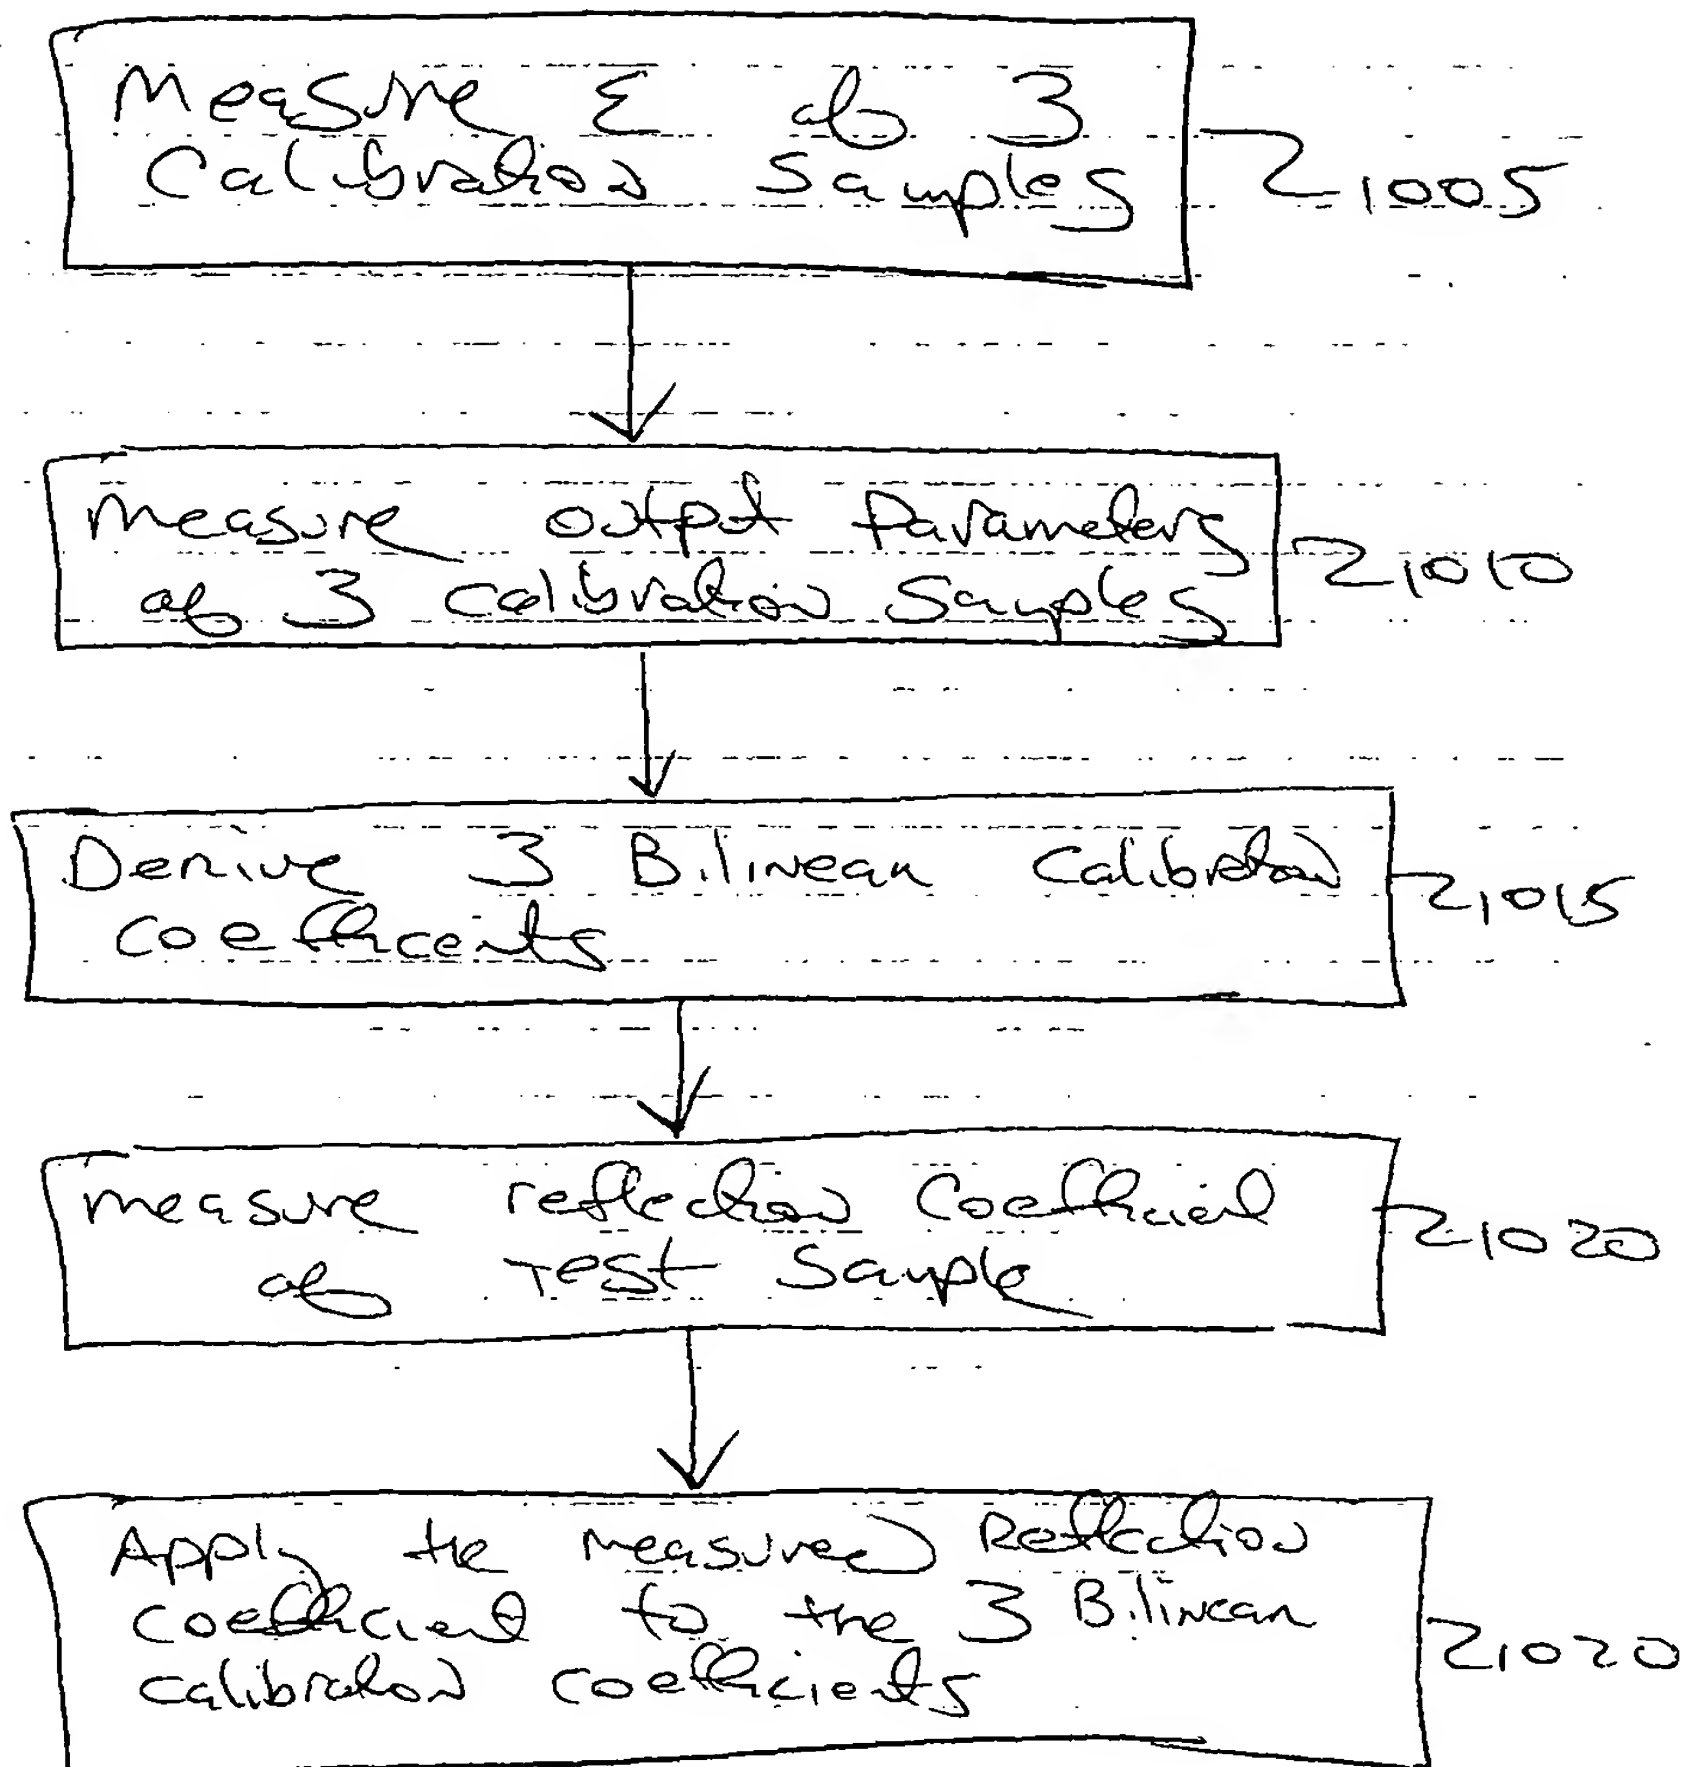 Measure ε of 3
Calibration Samples
1005
Measure output Parameters
of 3 Calibration Samples
1010
Derive 3 Bilinear Calibration
Coefficents
1015
measure reflection Coefficient
of Test Sample
1020
Apply the measured Reflection
coefficient to the 3 Bilinear
calibration coefficients
1020